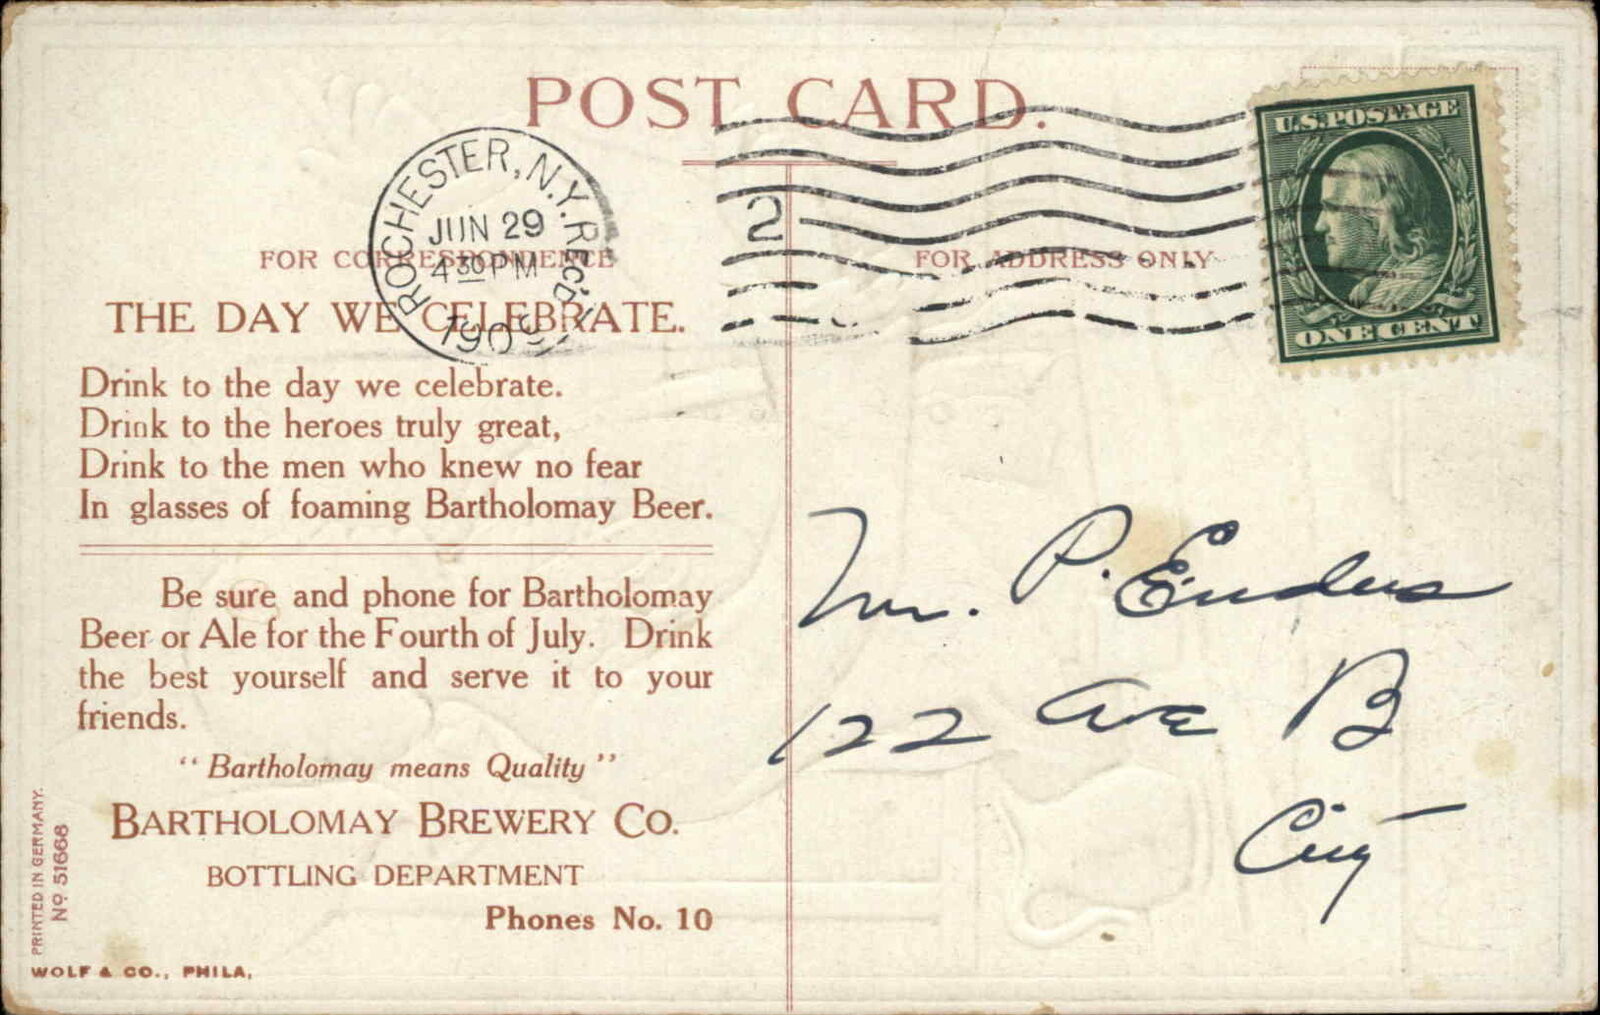 POST CARD.
U.S.POSTAGE
ONE CENT
ROCHESTER, N.Y. REC'D
JUN 29
4 30 PM
1909
2
FOR CORRESPONDENCE
FOR ADDRESS ONLY
THE DAY WE CELEBRATE.
Drink to the day we celebrate.
Drink to the heroes truly great,
Drink to the men who knew no fear
In glasses of foaming Bartholomay Beer.
Be sure and phone for Bartholomay
Beer or Ale for the Fourth of July. Drink
the best yourself and serve it to your
friends.
"Bartholomay means Quality"
BARTHOLOMAY BREWERY CO.
BOTTLING DEPARTMENT
Phones No. 10
PRINTED IN GERMANY.
No 51668
WOLF & CO., PHILA.
Mr. P. Enders
122 Ave B
City